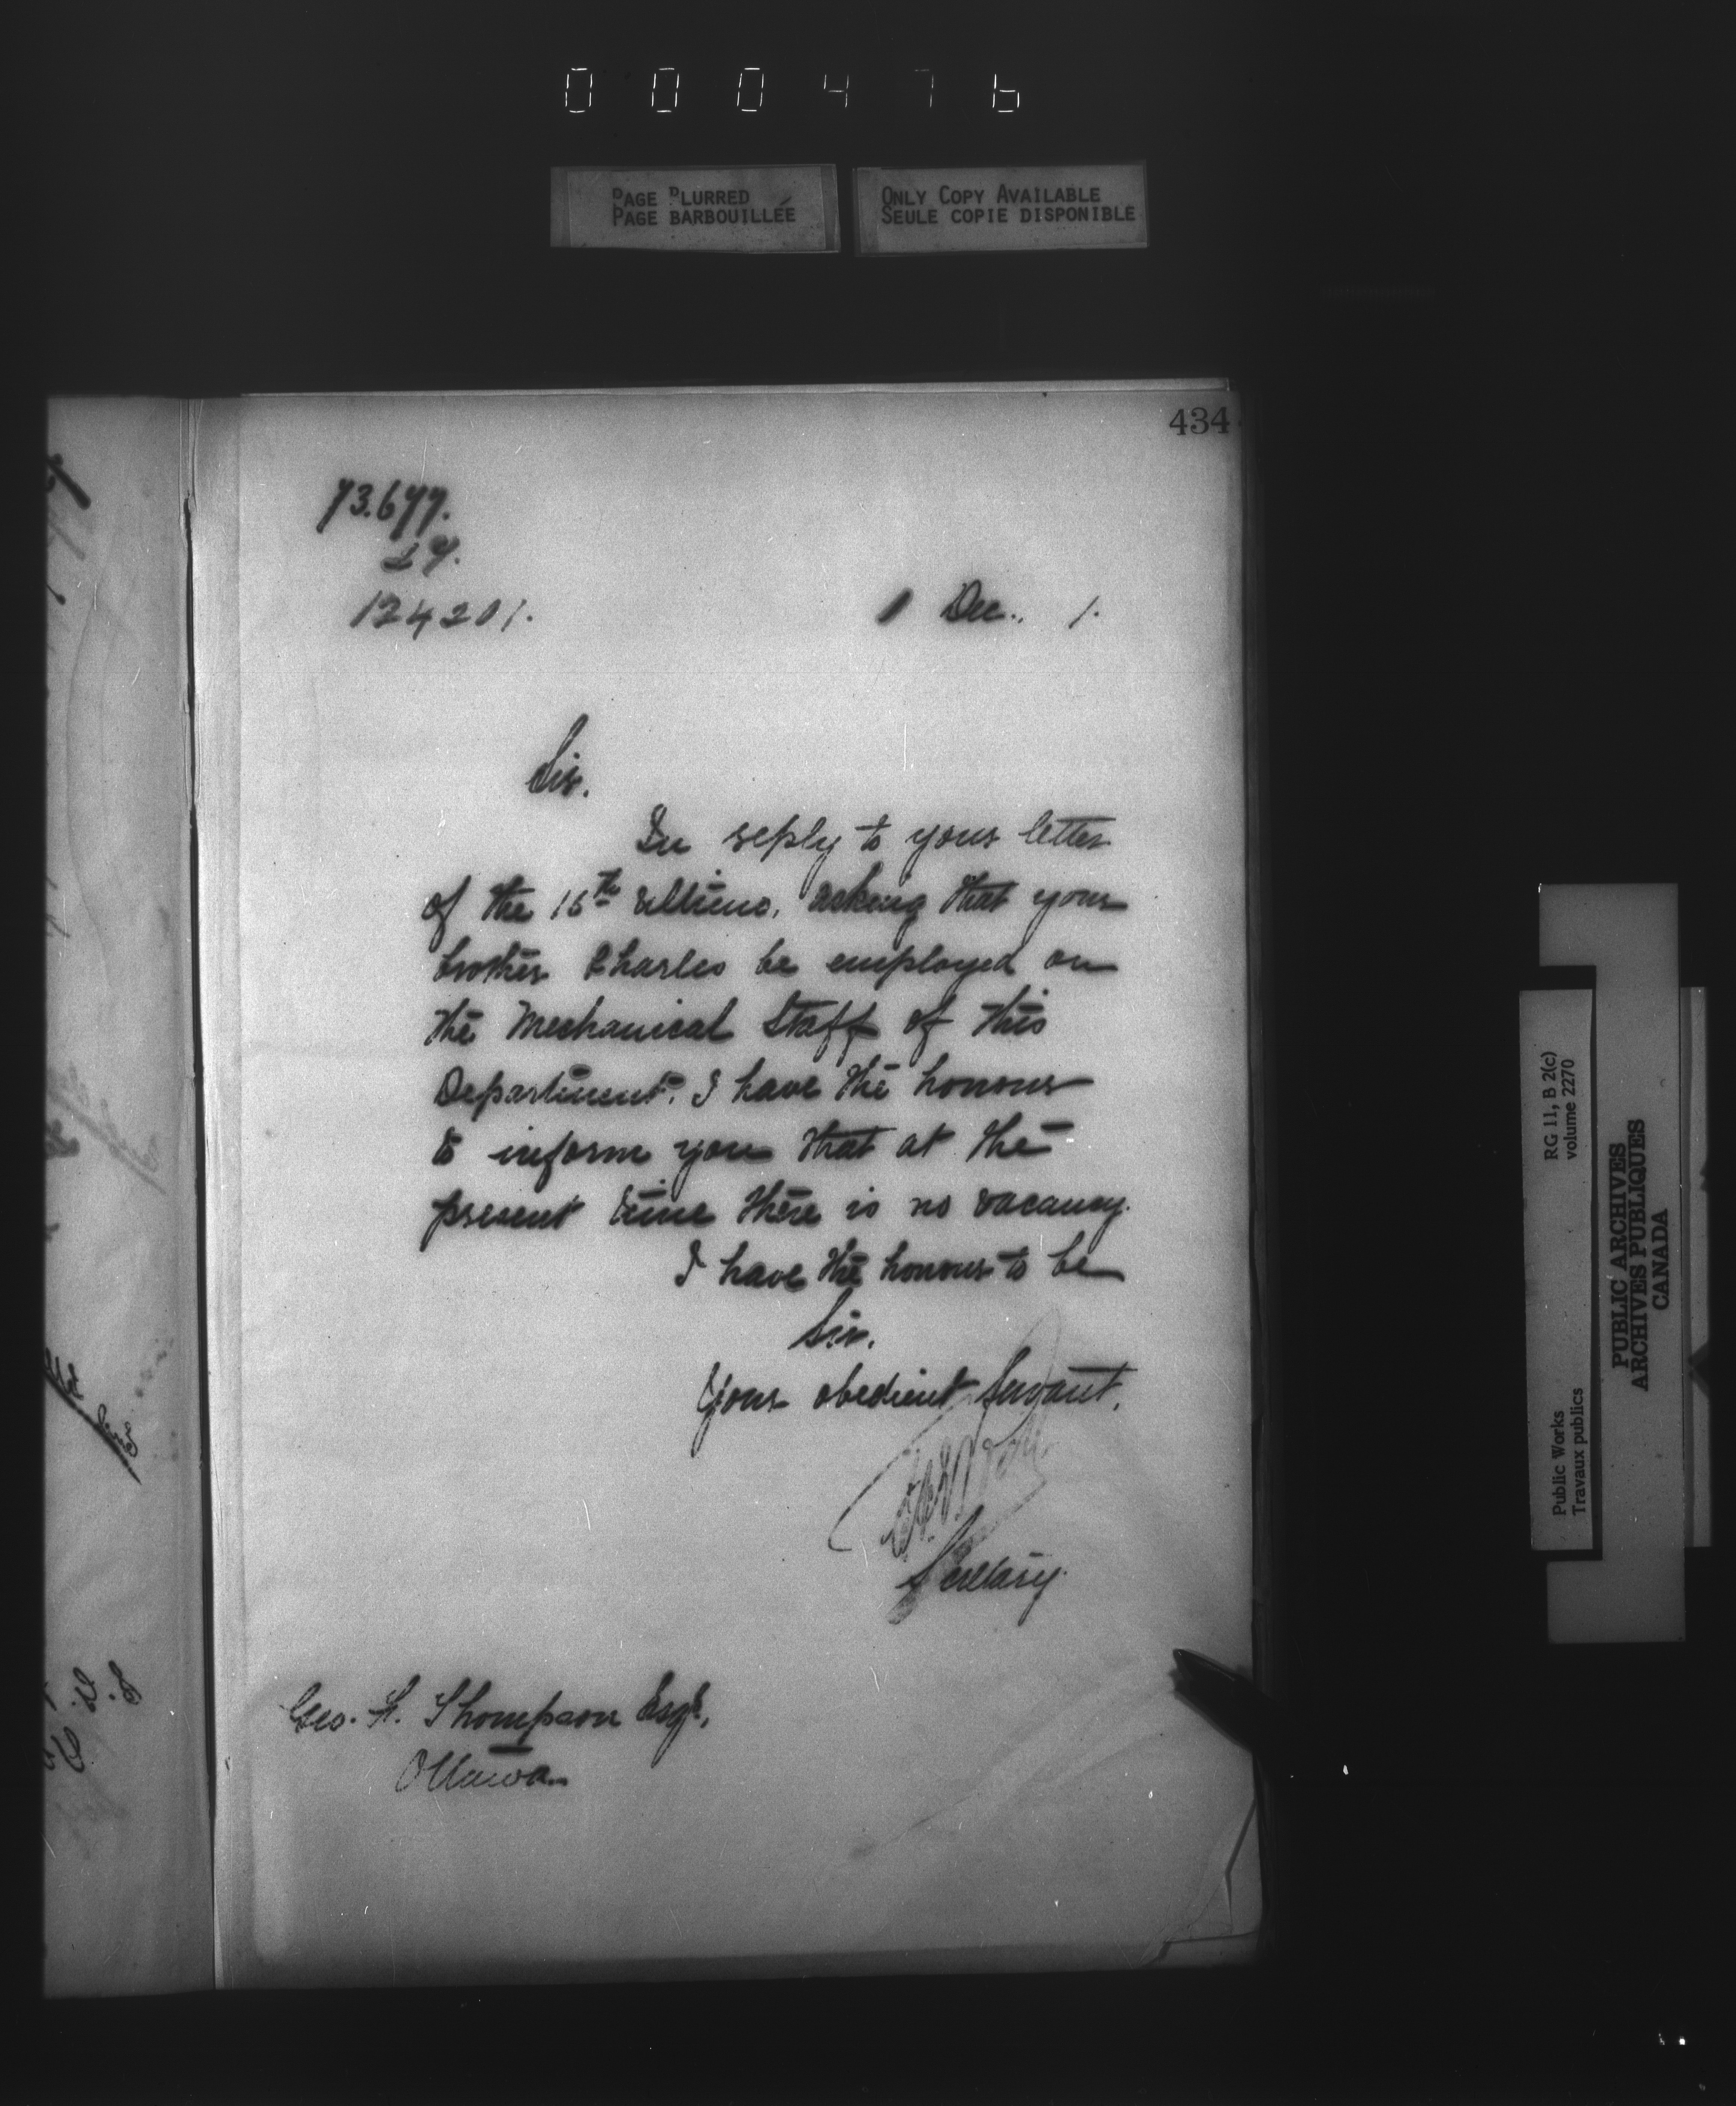 000476
PAGE BLURRED
PAGE BARBOUILLÉE
ONLY COPY AVAILABLE
SEULE COPIE DISPONIBLE
434
73.677.
124201.
Dec. 1.
Sir.
In reply to your letter
of the 16th ultimo, asking that your
brother Charles be employed on
the Mechanical Staff of this
Department. I have the honour
to inform you that at the
present time there is no vacancy.
I have the honour to be
Sir.
Your obedient Servant.
Secretary.
Geo. F. Thompson Esqr.,
Ottawa.
RG 11, B 2(c)
volume 2270
Public Works
Travaux publics
PUBLIC ARCHIVES
ARCHIVES PUBLIQUES
CANADA